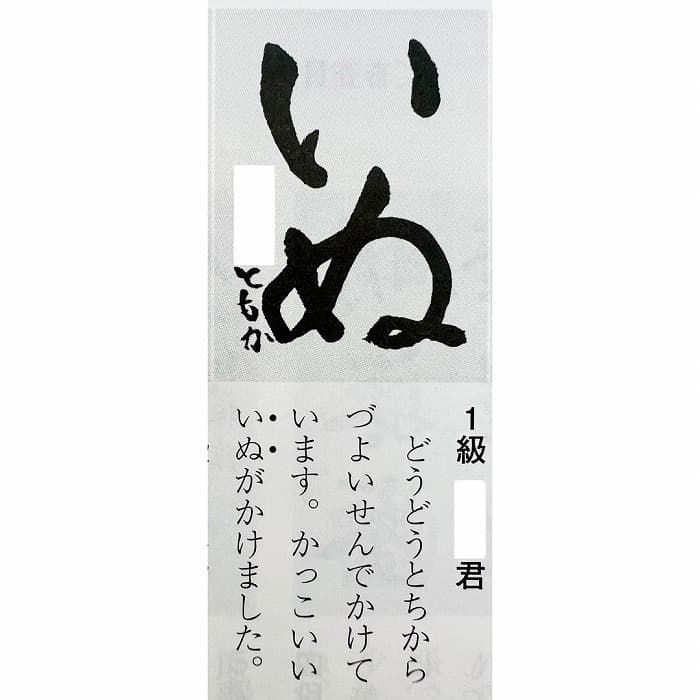 いぬ
ともか
1級 君
どうどうとちから
づよいせんでかけて
います。かっこいい
いぬがかけました。